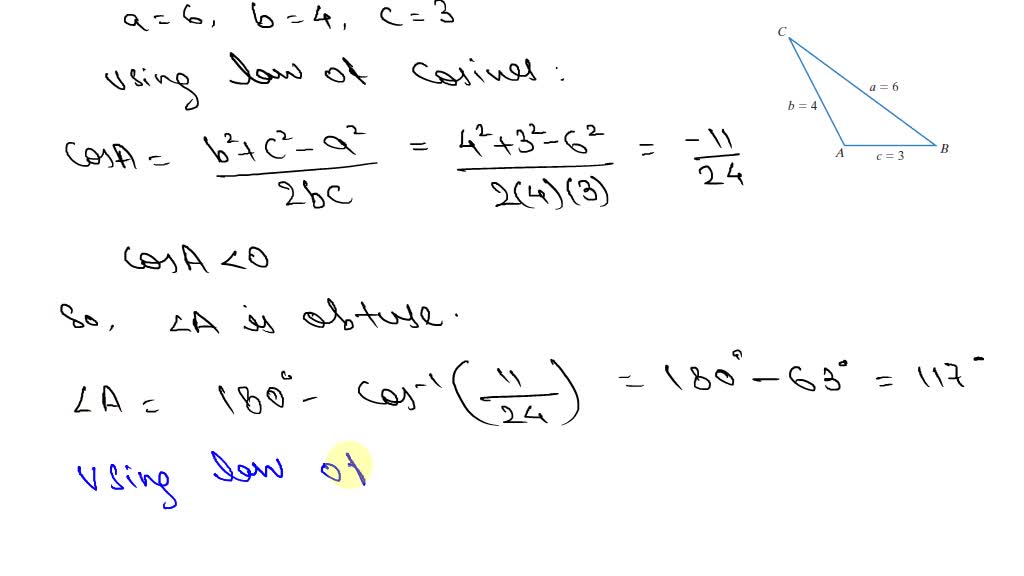 a = 6, b = 4, c = 3
Using law of cosines:
cosA = b²+c²-a² / 2bc = 4²+3²-6² / 2(4)(3) = -11/24
cosA <0
So, ∠A is obtuse.
∠A = 180° - cos⁻¹(11/24) = 180° - 63° = 117°
Using law of
C
a = 6
b = 4
A
c = 3
B